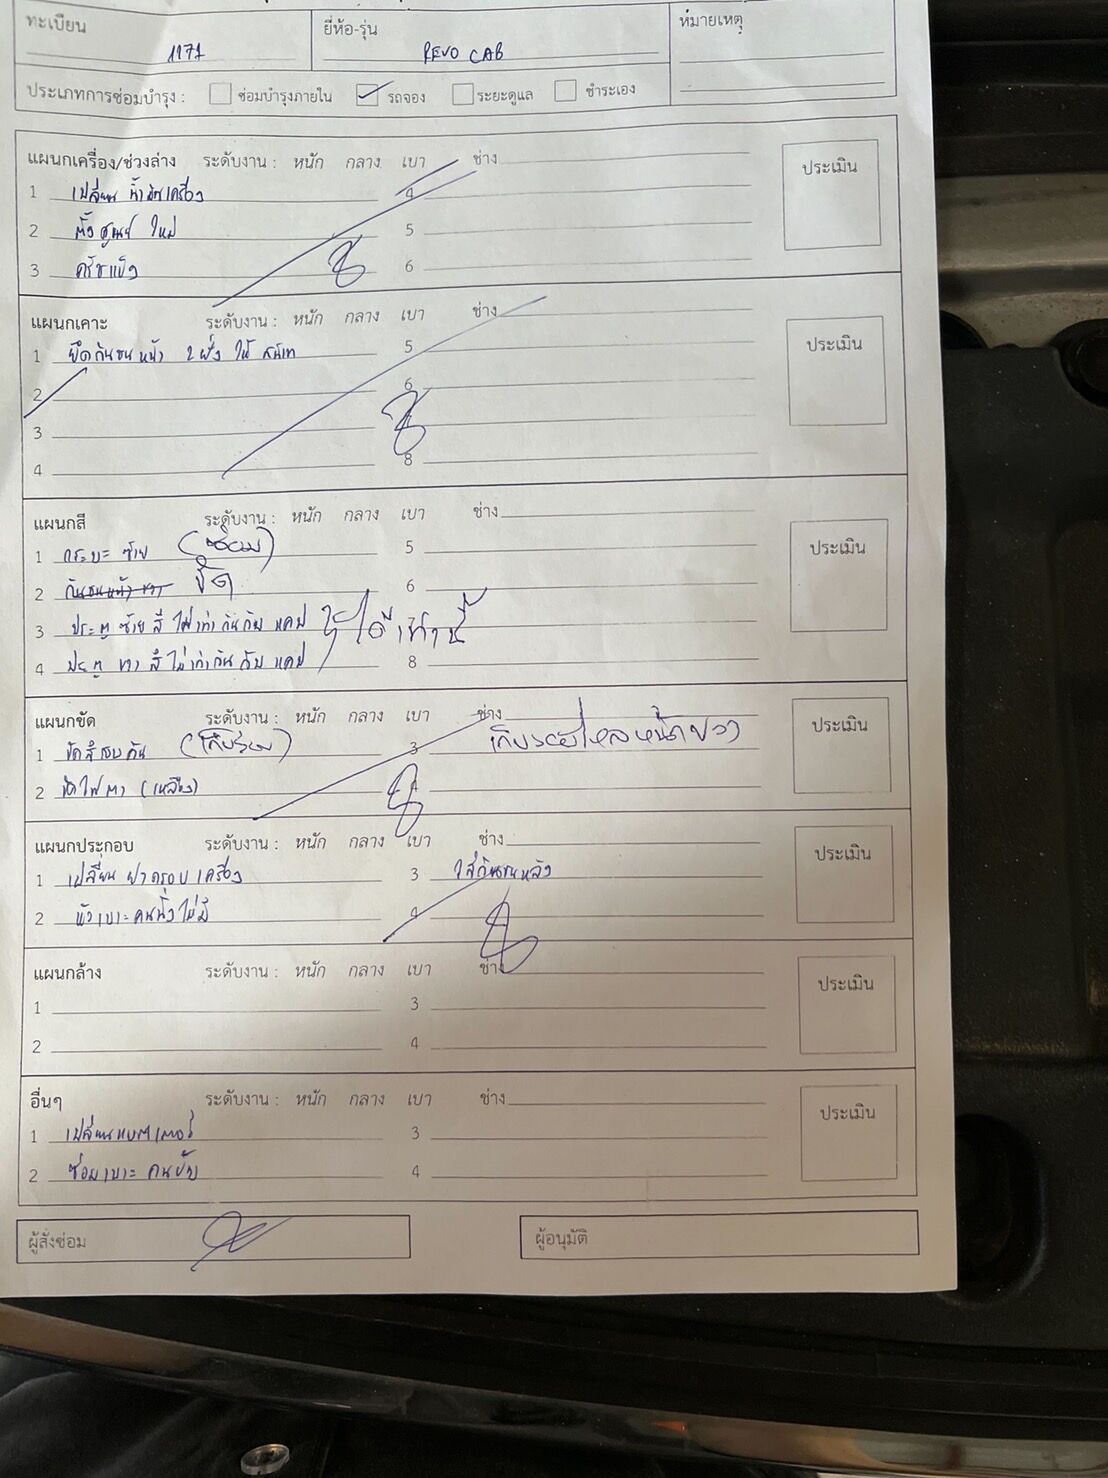 ทะเบียน 1171 ยี่ห้อ-รุ่น REVO CAB หมายเหตุ
ประเภทการซ่อมบำรุง : ซ่อมบำรุงภายใน รถจอง ระยะดูแล ชำระเอง
แผนกเครื่อง/ช่วงล่าง ระดับงาน : หนัก กลาง เบา ช่าง ประเมิน
1 เปลี่ยน น้ำมันเครื่อง 4
2 ตั้งศูนย์ ใหม่ 5
3 ครัชแข็ง 6
แผนกเคาะ ระดับงาน : หนัก กลาง เบา ช่าง ประเมิน
1 ยึดกันชนหน้า 2 ฝั่ง ให้ สนิท 5
2 6
3
4 8
แผนกสี ระดับงาน : หนัก กลาง เบา ช่าง ประเมิน
1 กระบะ ซ้าย (ซ่อม) 5
2 กันชนหน้า ขวา ขัด 6
3 ประตู ซ้าย สี ไม่เท่ากันกับ แคป ได้เท่านี้
4 ประตู ขวา สี ไม่เท่ากัน กับ แคป 8
แผนกขัด ระดับงาน : หนัก กลาง เบา ช่าง ประเมิน
1 ขัดสีรอบคัน (เก็บรอย) 3 เก็บรอยไหลหน้าขวา
2 ขัดไฟตา (เหลือง)
แผนกประกอบ ระดับงาน : หนัก กลาง เบา ช่าง ประเมิน
1 เปลี่ยน ฝาครอบเครื่อง 3 ใส่กันชนหลัง
2 หัวเบาะคนนั่งไม่มี 4
แผนกล้าง ระดับงาน : หนัก กลาง เบา ช่าง ประเมิน
1 3
2 4
อื่นๆ ระดับงาน : หนัก กลาง เบา ช่าง ประเมิน
1 เปลี่ยนแบตเตอรี่ 3
2 ซ่อมเบาะ คนขับ 4
ผู้สั่งซ่อม ผู้อนุมัติ